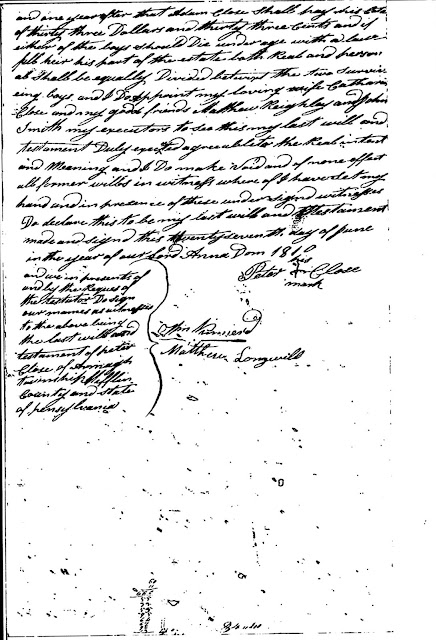 and one year after that Adam Close Shall pay his
of thirty three Dollars and thirty three Cents and if
either of the boys should Die under age with a last
full heir his part of the estate both Real and person
al Shall be equally Divided between the two Surviv
eing boys, and I Do appoint my loving wife Catharin
Close and my good friends Matthew Keighley and John
Smith my executors to see this my last will and
testament Duly executed agreeable to the Real intent
and Meaning and I Do make void and of none effect
all former wills in witness where of I have set my
hand and in presence of these under signd witnesses
Do declare this to be my last will and testament
made and signd this twenty seventh day of June
in the year of our Lord Anno Dom 1810
his
Peter Close
mark
and we in presents of
and by the Reques of
the testator Do sign
our names as witnesses
to the above being
the last will and
testament of peter
Close of Armagh
township Mifflin
County and State
of pensylvania
Matthew Longwill